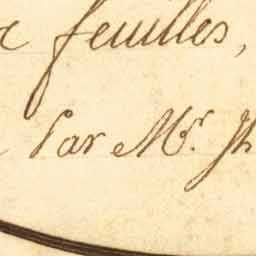 feuilles,
Par Mr. Jh